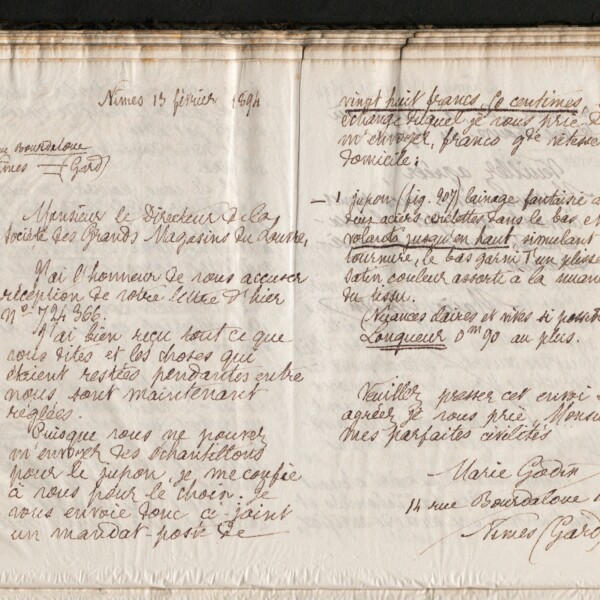 Nîmes 13 février 1894
rue Bourdaloue
Nîmes (Gard)
Monsieur le Directeur de la
Société des Grands Magasins du Louvre,
J'ai l'honneur de vous accuser
réception de votre lettre d'hier
N° 724 366.
J'ai bien reçu tout ce que
vous dites et les choses qui
étaient restées pendantes entre
nous sont maintenant
réglées.
Puisque vous ne pouvez
m'envoyer des échantillons
pour le jupon, je me confie
à vous pour le choix. Je
vous envoie donc ci-joint
un mandat-poste de
vingt huit francs, 50 centimes,
échange duquel je vous prie
m'envoyer, franco
domicile:
— 1 jupon (fig. 207) lainage fantaisie
deux aciers cerclettes dans le bas et
volants jusqu'en haut, simulant
tournure, le bas garni d'un plissé
satin couleur assorti à la nuan
du tissu.
(Nuances claires et vives si possib
Longueur 0m90 au plus.
Veuillez presser cet envoi
agréer je vous prie, Monsi
mes parfaites civilités
Marie Godin
14 rue Bourdaloue
Nîmes (Gard